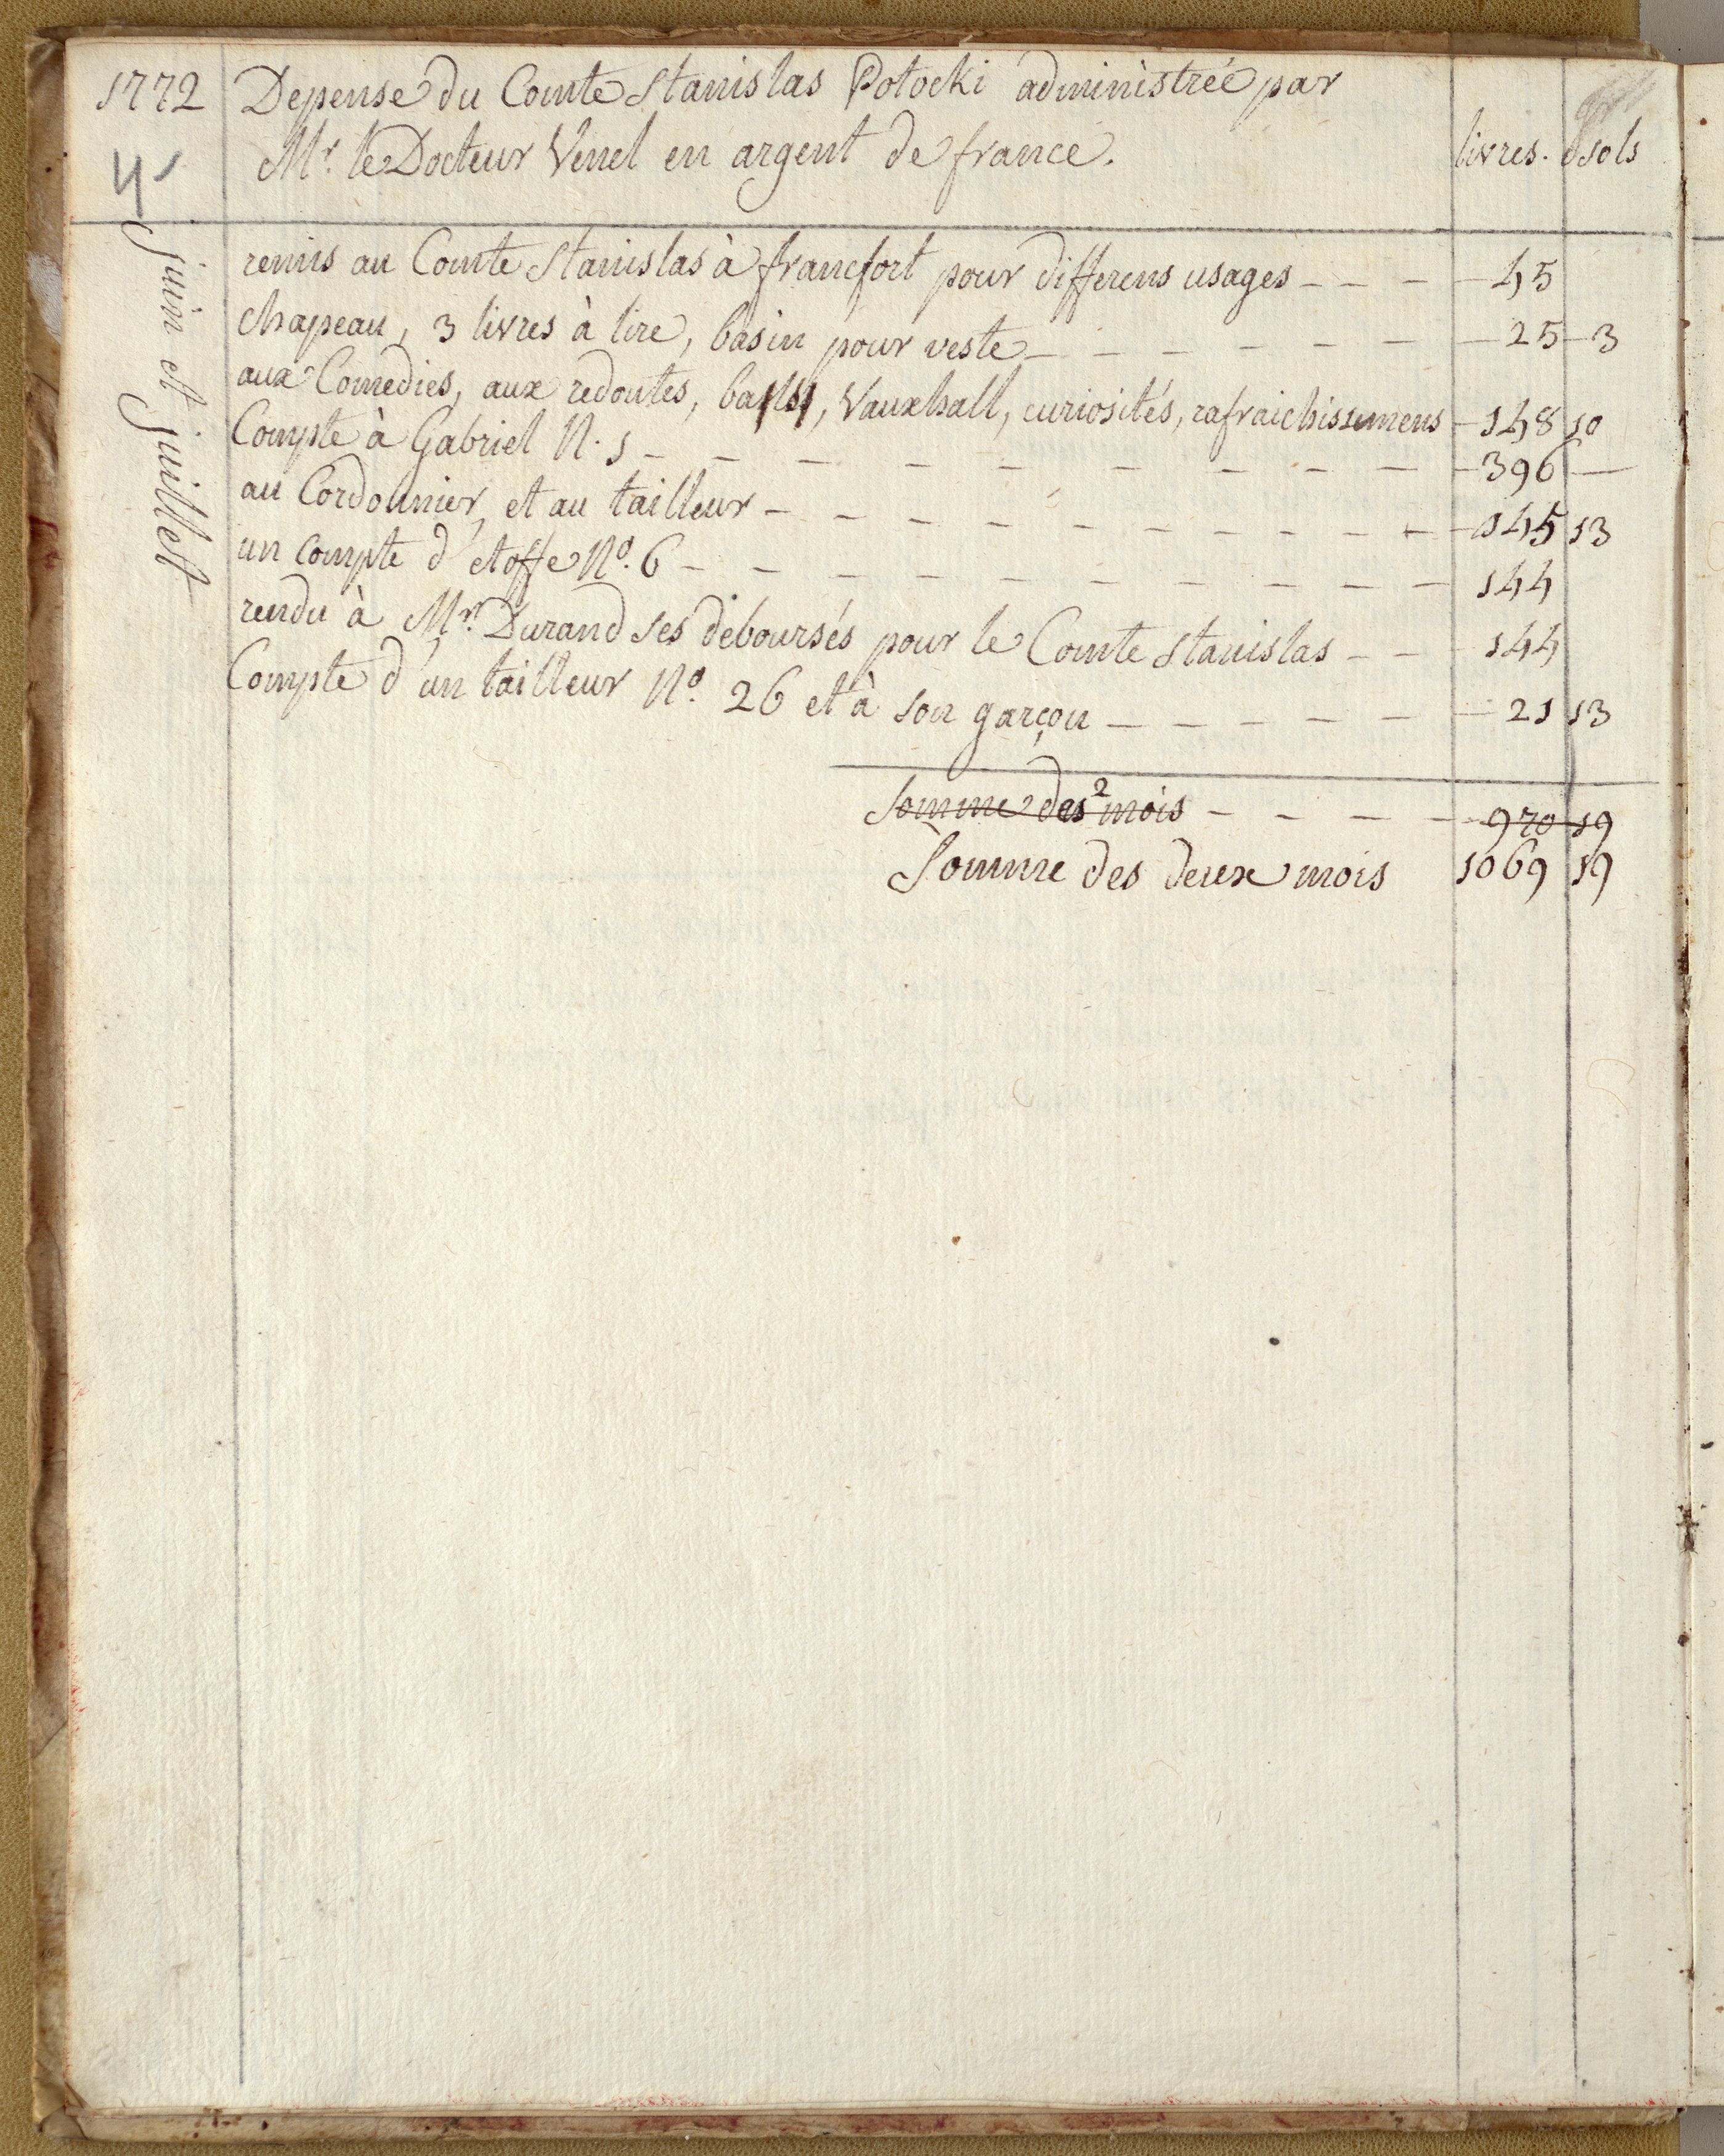 1772 Depense du Comte Stanislas Potocki administrée par
Mr. le Docteur Venel en argent de france. livres. sols
4
juin et juillet
remis au Comte Stanislas à francfort pour differens usages - - - - 45
chapeau, 3 livres à lire, basin pour veste - - - - - - - 25 - 3
aux Comedies, aux redoutes, balls, Vauxhall, curiosités, rafraichissemens - 148 10
Compte à Gabriel N. 1 - - - - - - - - - - 396 —
au Cordonnier, et au tailleur - - - - - - - - - - 145 13
un compte d'etoffe No. 6 - - - - - - - - - - 144
rendu à Mr. Durand ses deboursés pour le Comte Stanislas - - - 144
Compte d'un tailleur No. 26 et à son garçon - - - - - - 21 13
Somme des 2 mois - - - - 970 19
Somme des deux mois 1069 19